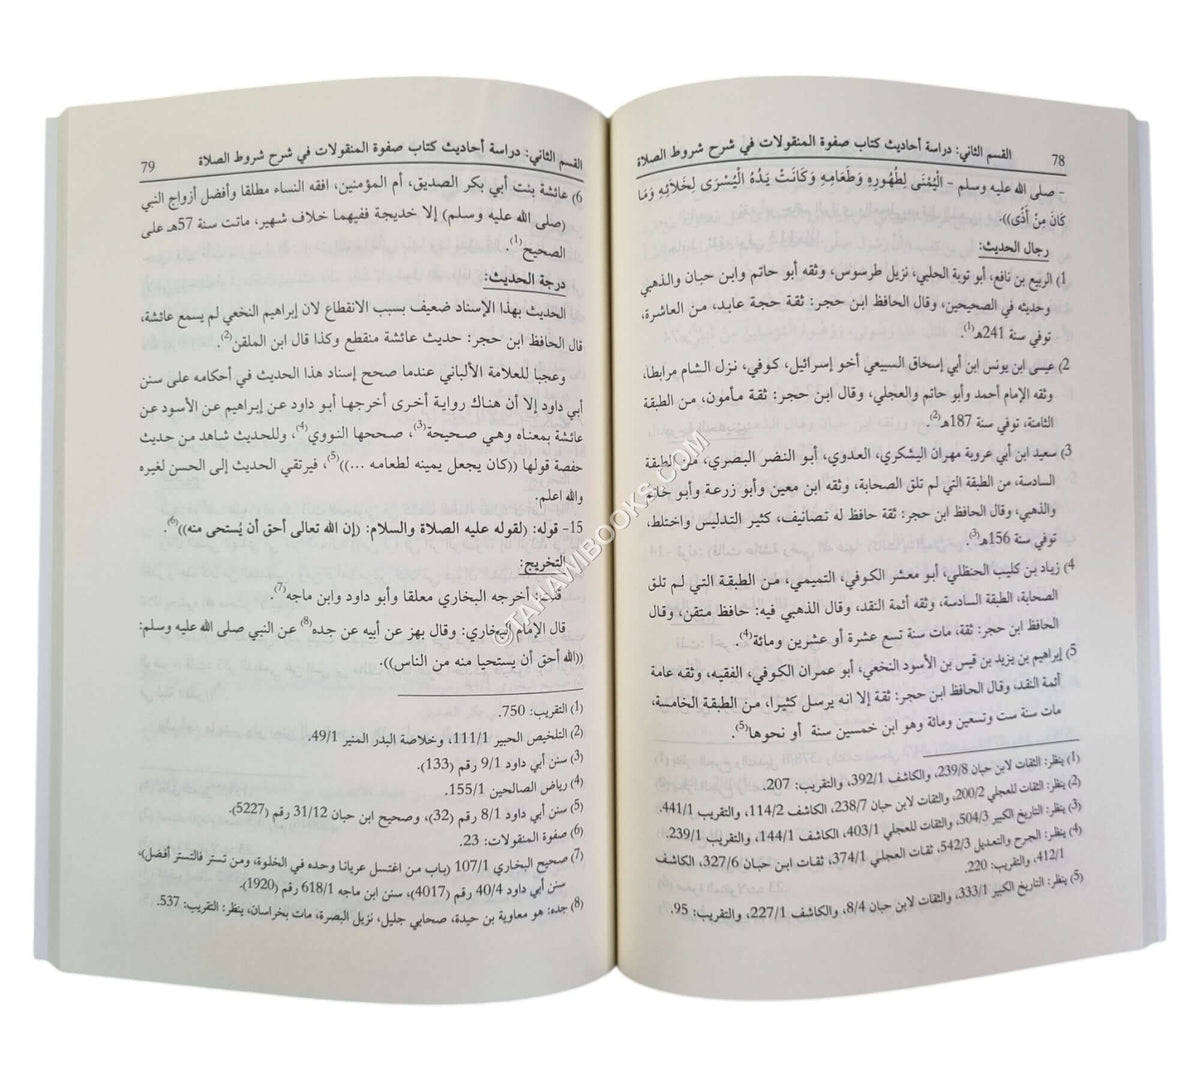 78 القسم الثاني: دراسة أحاديث كتاب صفوة المنقولات في شرح شروط الصلاة
- صلى الله عليه وسلم - الْيُمْنَى لِطُهُورِهِ وَطَعَامِهِ وَكَانَتْ يَدُهُ الْيُسْرَى لِخَلَائِهِ وَمَا
كَانَ مِنْ أَذًى)).
رجال الحديث:
1) الربيع بن نافع، أبو توبة الحلبي، نزيل طرسوس، وثقه أبو حاتم وابن حبان والذهبي
وحديثه في الصحيحين، وقال الحافظ ابن حجر: ثقة حجة عابد، من العاشرة،
توفي سنة 241هـ(1).
2) عيسى ابن يونس ابن أبي إسحاق السبيعي أخو إسرائيل، كوفي، نزل الشام مرابطا،
وثقه الإمام أحمد وأبو حاتم والعجلي، وقال ابن حجر: ثقة مأمون، من الطبقة
الثامنة، توفي سنة 187هـ(2).
3) سعيد ابن أبي عروبة مهران اليشكري، العدوي، أبو النضر البصري، من الطبقة
السادسة، من الطبقة التي لم تلق الصحابة، وثقه ابن معين وأبو زرعة وأبو حاتم
والذهبي، وقال الحافظ ابن حجر: ثقة حافظ له تصانيف، كثير التدليس واختلط،
توفي سنة 156هـ(3).
4) زياد بن كليب الحنظلي، أبو معشر الكوفي، التميمي، من الطبقة التي لم تلق
الصحابة، الطبقة السادسة، وثقه أئمة النقد، وقال الذهبي فيه: حافظ متقن، وقال
الحافظ ابن حجر: ثقة، مات سنة تسع عشرة أو عشرين ومائة(4).
5) إبراهيم بن يزيد بن قيس بن الأسود النخعي، أبو عمران الكوفي، الفقيه، وثقه عامة
أئمة النقد، وقال الحافظ ابن حجر: ثقة إلا انه يرسل كثيرا، من الطبقة الخامسة،
مات سنة ست وتسعين ومائة وهو ابن خمسين سنة أو نحوها(5).
(1) ينظر: الثقات لابن حبان 239/8، والكاشف 392/1، والتقريب: 207.
(2) ينظر: الثقات للعجلي 200/2، والثقات لابن حبان 238/7، الكاشف 114/2، والتقريب 441/1.
(3) ينظر: التاريخ الكبير 504/3، والثقات للعجلي 403/1، الكاشف 144/1، والتقريب 239/1.
(4) ينظر: الجرح والتعديل 542/3، ثقات العجلي 374/1، ثقات ابن حبان 327/6، الكاشف
412/1، والتقريب: 220.
(5) ينظر: التاريخ الكبير 333/1، والثقات لابن حبان 8/4، والكاشف 227/1، والتقريب: 95.
القسم الثاني: دراسة أحاديث كتاب صفوة المنقولات في شرح شروط الصلاة 79
6) عائشة بنت أبي بكر الصديق، أم المؤمنين، افقه النساء مطلقا وأفضل أزواج النبي
(صلى الله عليه وسلم) إلا خديجة ففيهما خلاف شهير، ماتت سنة 57هـ على
الصحيح(1).
درجة الحديث:
الحديث بهذا الإسناد ضعيف بسبب الانقطاع لان إبراهيم النخعي لم يسمع عائشة،
قال الحافظ ابن حجر: حديث عائشة منقطع وكذا قال ابن الملقن(2).
وعجبا للعلامة الألباني عندما صحح إسناد هذا الحديث في أحكامه على سنن
أبي داود إلا أن هناك رواية أخرى أخرجها أبو داود عن إبراهيم عن الأسود عن
عائشة بمعناه وهي صحيحة(3)، صححها النووي(4)، وللحديث شاهد من حديث
حفصة قولها ((كان يجعل يمينه لطعامه ...))(5)، فيرتقي الحديث إلى الحسن لغيره
والله اعلم.
15- قوله: (لقوله عليه الصلاة والسلام: (إن الله تعالى أحق أن يُستحى منه))(6).
التخريج:
قلت: أخرجه البخاري معلقا وأبو داود وابن ماجه(7).
قال الإمام البخاري: وقال بهز عن أبيه عن جده(8) عن النبي صلى الله عليه وسلم:
((الله أحق أن يستحيا منه من الناس)).
(1) التقريب: 750.
(2) التلخيص الحبير 111/1، وخلاصة البدر المنير 49/1.
(3) سنن أبي داود 9/1 رقم (133).
(4) رياض الصالحين 155/1.
(5) سنن أبي داود 8/1 رقم (32)، وصحيح ابن حبان 31/12 رقم (5227).
(6) صفوة المنقولات: 23.
(7) صحيح البخاري 107/1 (باب من اغتسل عريانا وحده في الخلوة، ومن تستر فالتستر أفضل)،
سنن أبي داود 40/4 رقم (4017)، سنن ابن ماجه 618/1 رقم (1920).
(8) جده: هو معاوية بن حيدة، صحابي جليل، نزيل البصرة، مات بخراسان، ينظر: التقريب: 537.